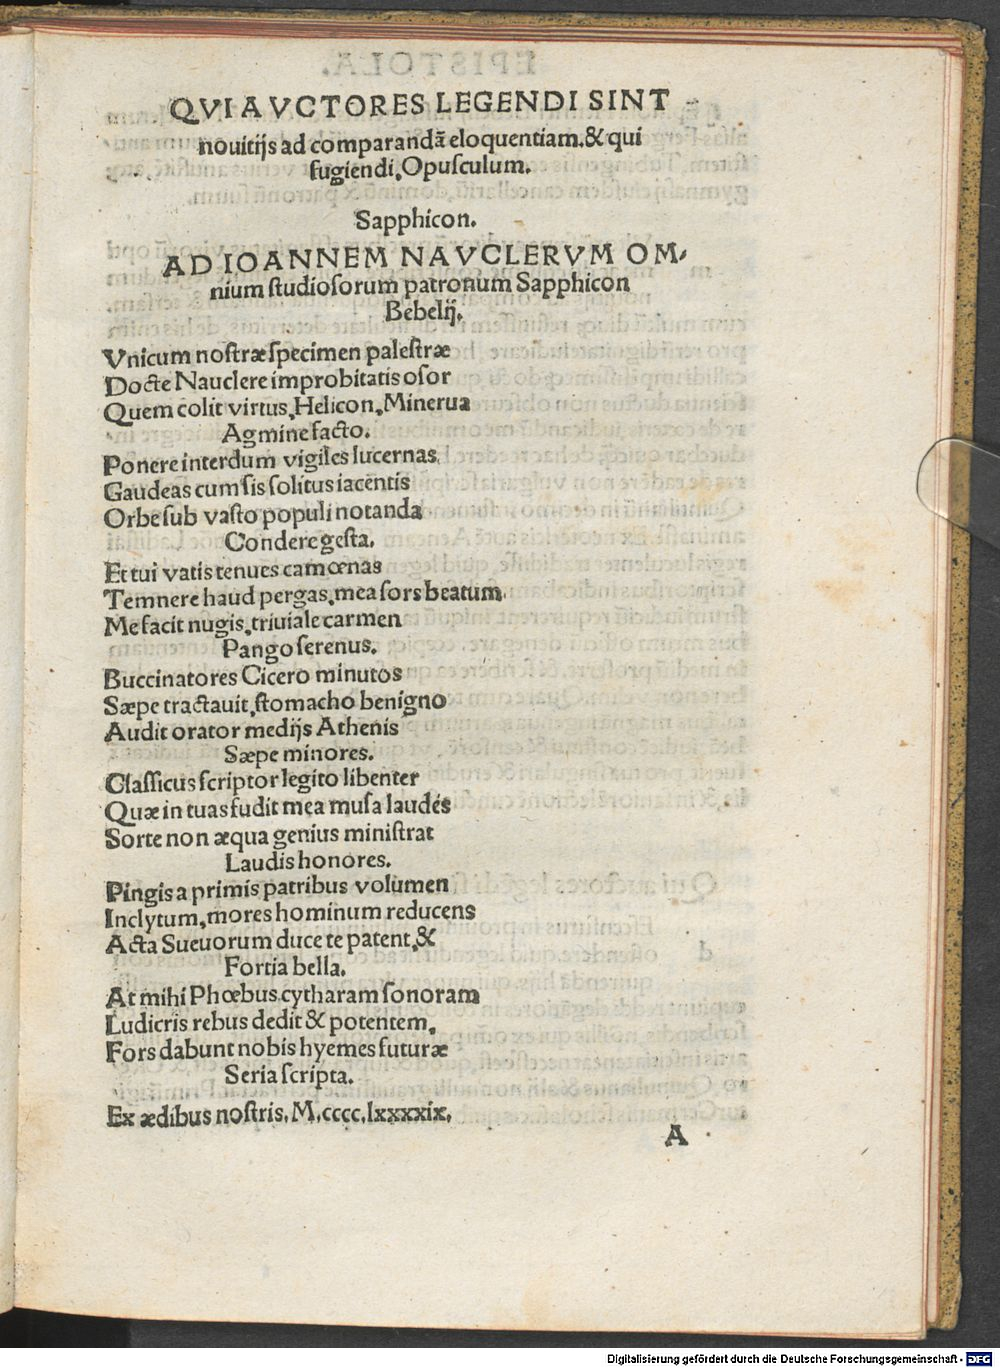 QVI AVCTORES LEGENDI SINT
nouitijs ad comparandā eloquentiam.& qui
fugiendi.Opusculum.
Sapphicon.
AD IOANNEM NAVCLERVM OM-
nium studiosorum patronum Sapphicon
Bebelij.
Vnicum nostræ specimen palestræ
Docte Nauclere improbitatis osor
Quem colit virtus.Helicon.Minerua
Agmine facto.
Ponere interdum vigiles lucernas
Gaudeas cum sis solitus iacentis
Orbe sub vasto populi notanda
Condere gesta.
Et tui vatis tenues camœnas
Temnere haud pergas.mea sors beatum
Me facit nugis.triuiale carmen
Pango serenus.
Buccinatores Cicero minutos
Sæpe tractauit.stomacho benigno
Audit orator medijs Athenis
Sæpe minores.
Classicus scriptor legito libenter
Quæ in tuas fudit mea musa laudes
Sorte non æqua genius ministrat
Laudis honores.
Pingis a primis patribus volumen
Inclytum.mores hominum reducens
Acta Sueuorum duce te patent.&
Fortia bella.
At mihi Phœbus cytharam sonoram
Ludicris rebus dedit & potentem.
Fors dabunt nobis hyemes futuræ
Seria scripta.
Ex ædibus nostris. M.cccc.lxxxxix.
A
Digitalisierung gefördert durch die Deutsche Forschungsgemeinschaft - DFG